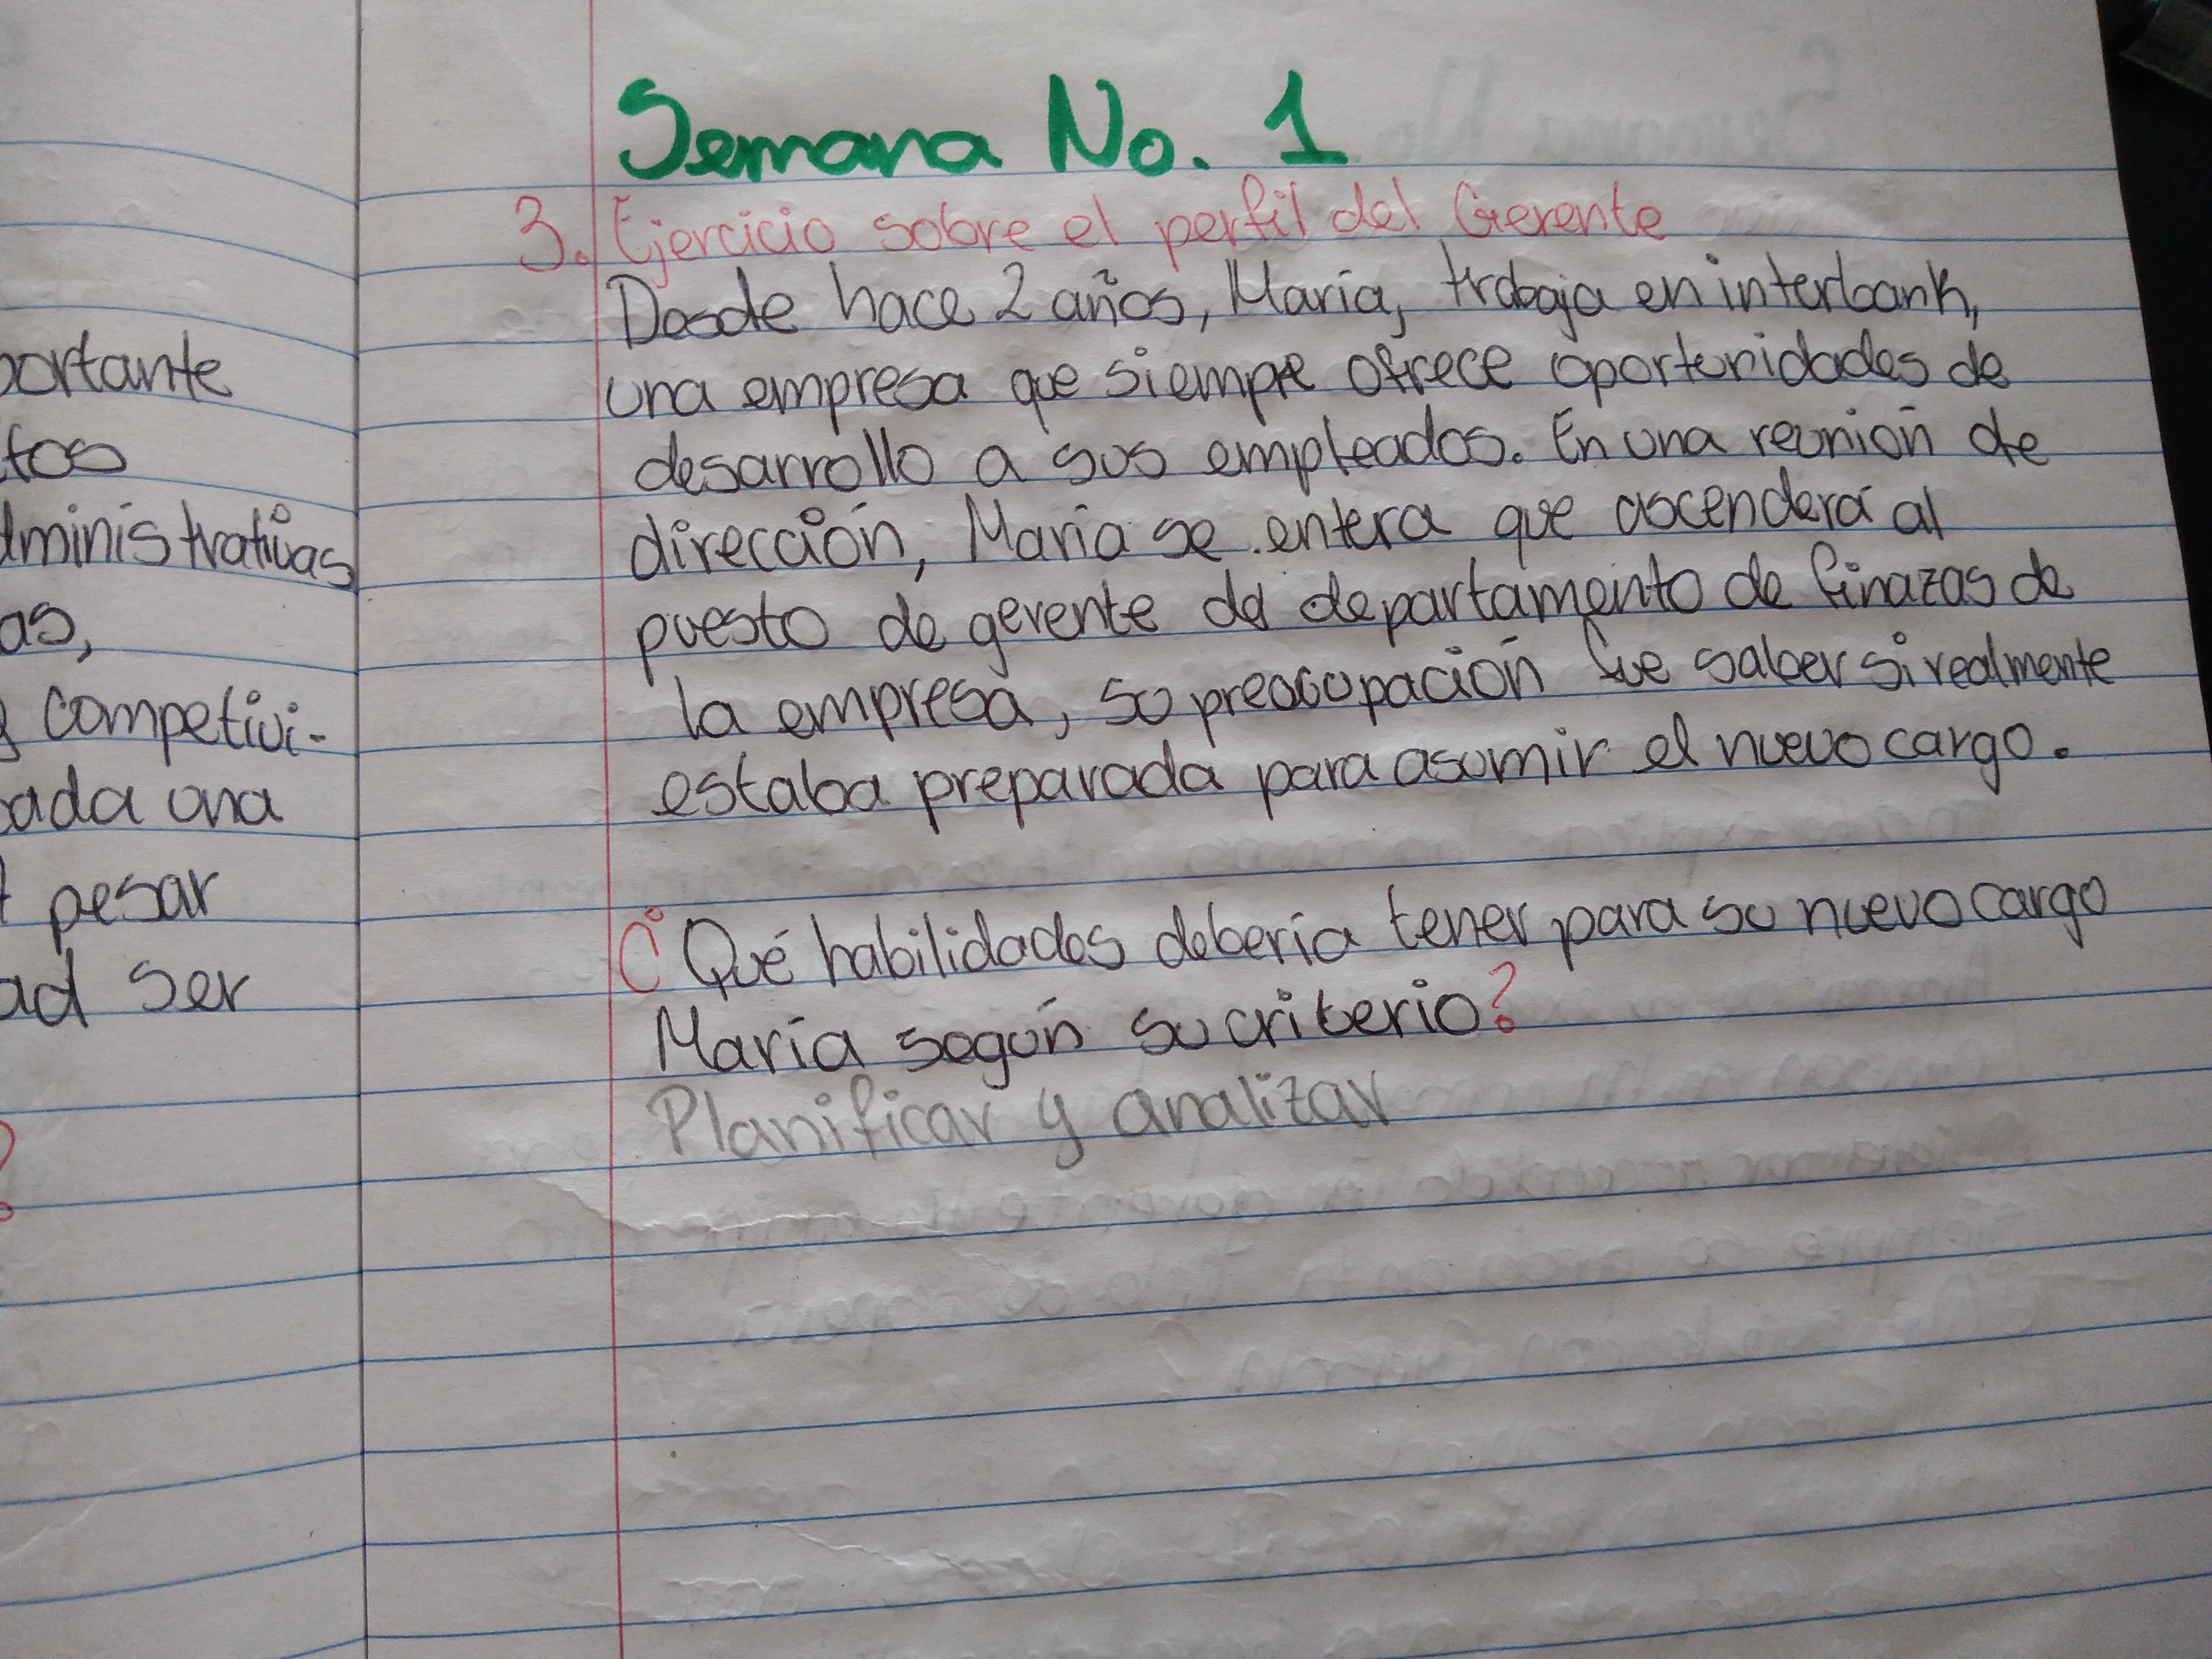 portante
tos
dministrativas
as,
y competivi-
cada una
pesar
ad ser
?
Semana No. 1
3. Ejercicio sobre el perfil del Gerente
Desde hace 2 años, María, trabaja en interbank,
una empresa que siempre ofrece oportunidades de
desarrollo a sus empleados. En una reunión de
dirección, María se entera que ascenderá al
puesto de gerente del departamento de finazas de
la empresa, su preocupación fue saber si realmente
estaba preparada para asumir el nuevo cargo.
¿Qué habilidades debería tener para su nuevo cargo
María según su criterio?
Planificar y analizar